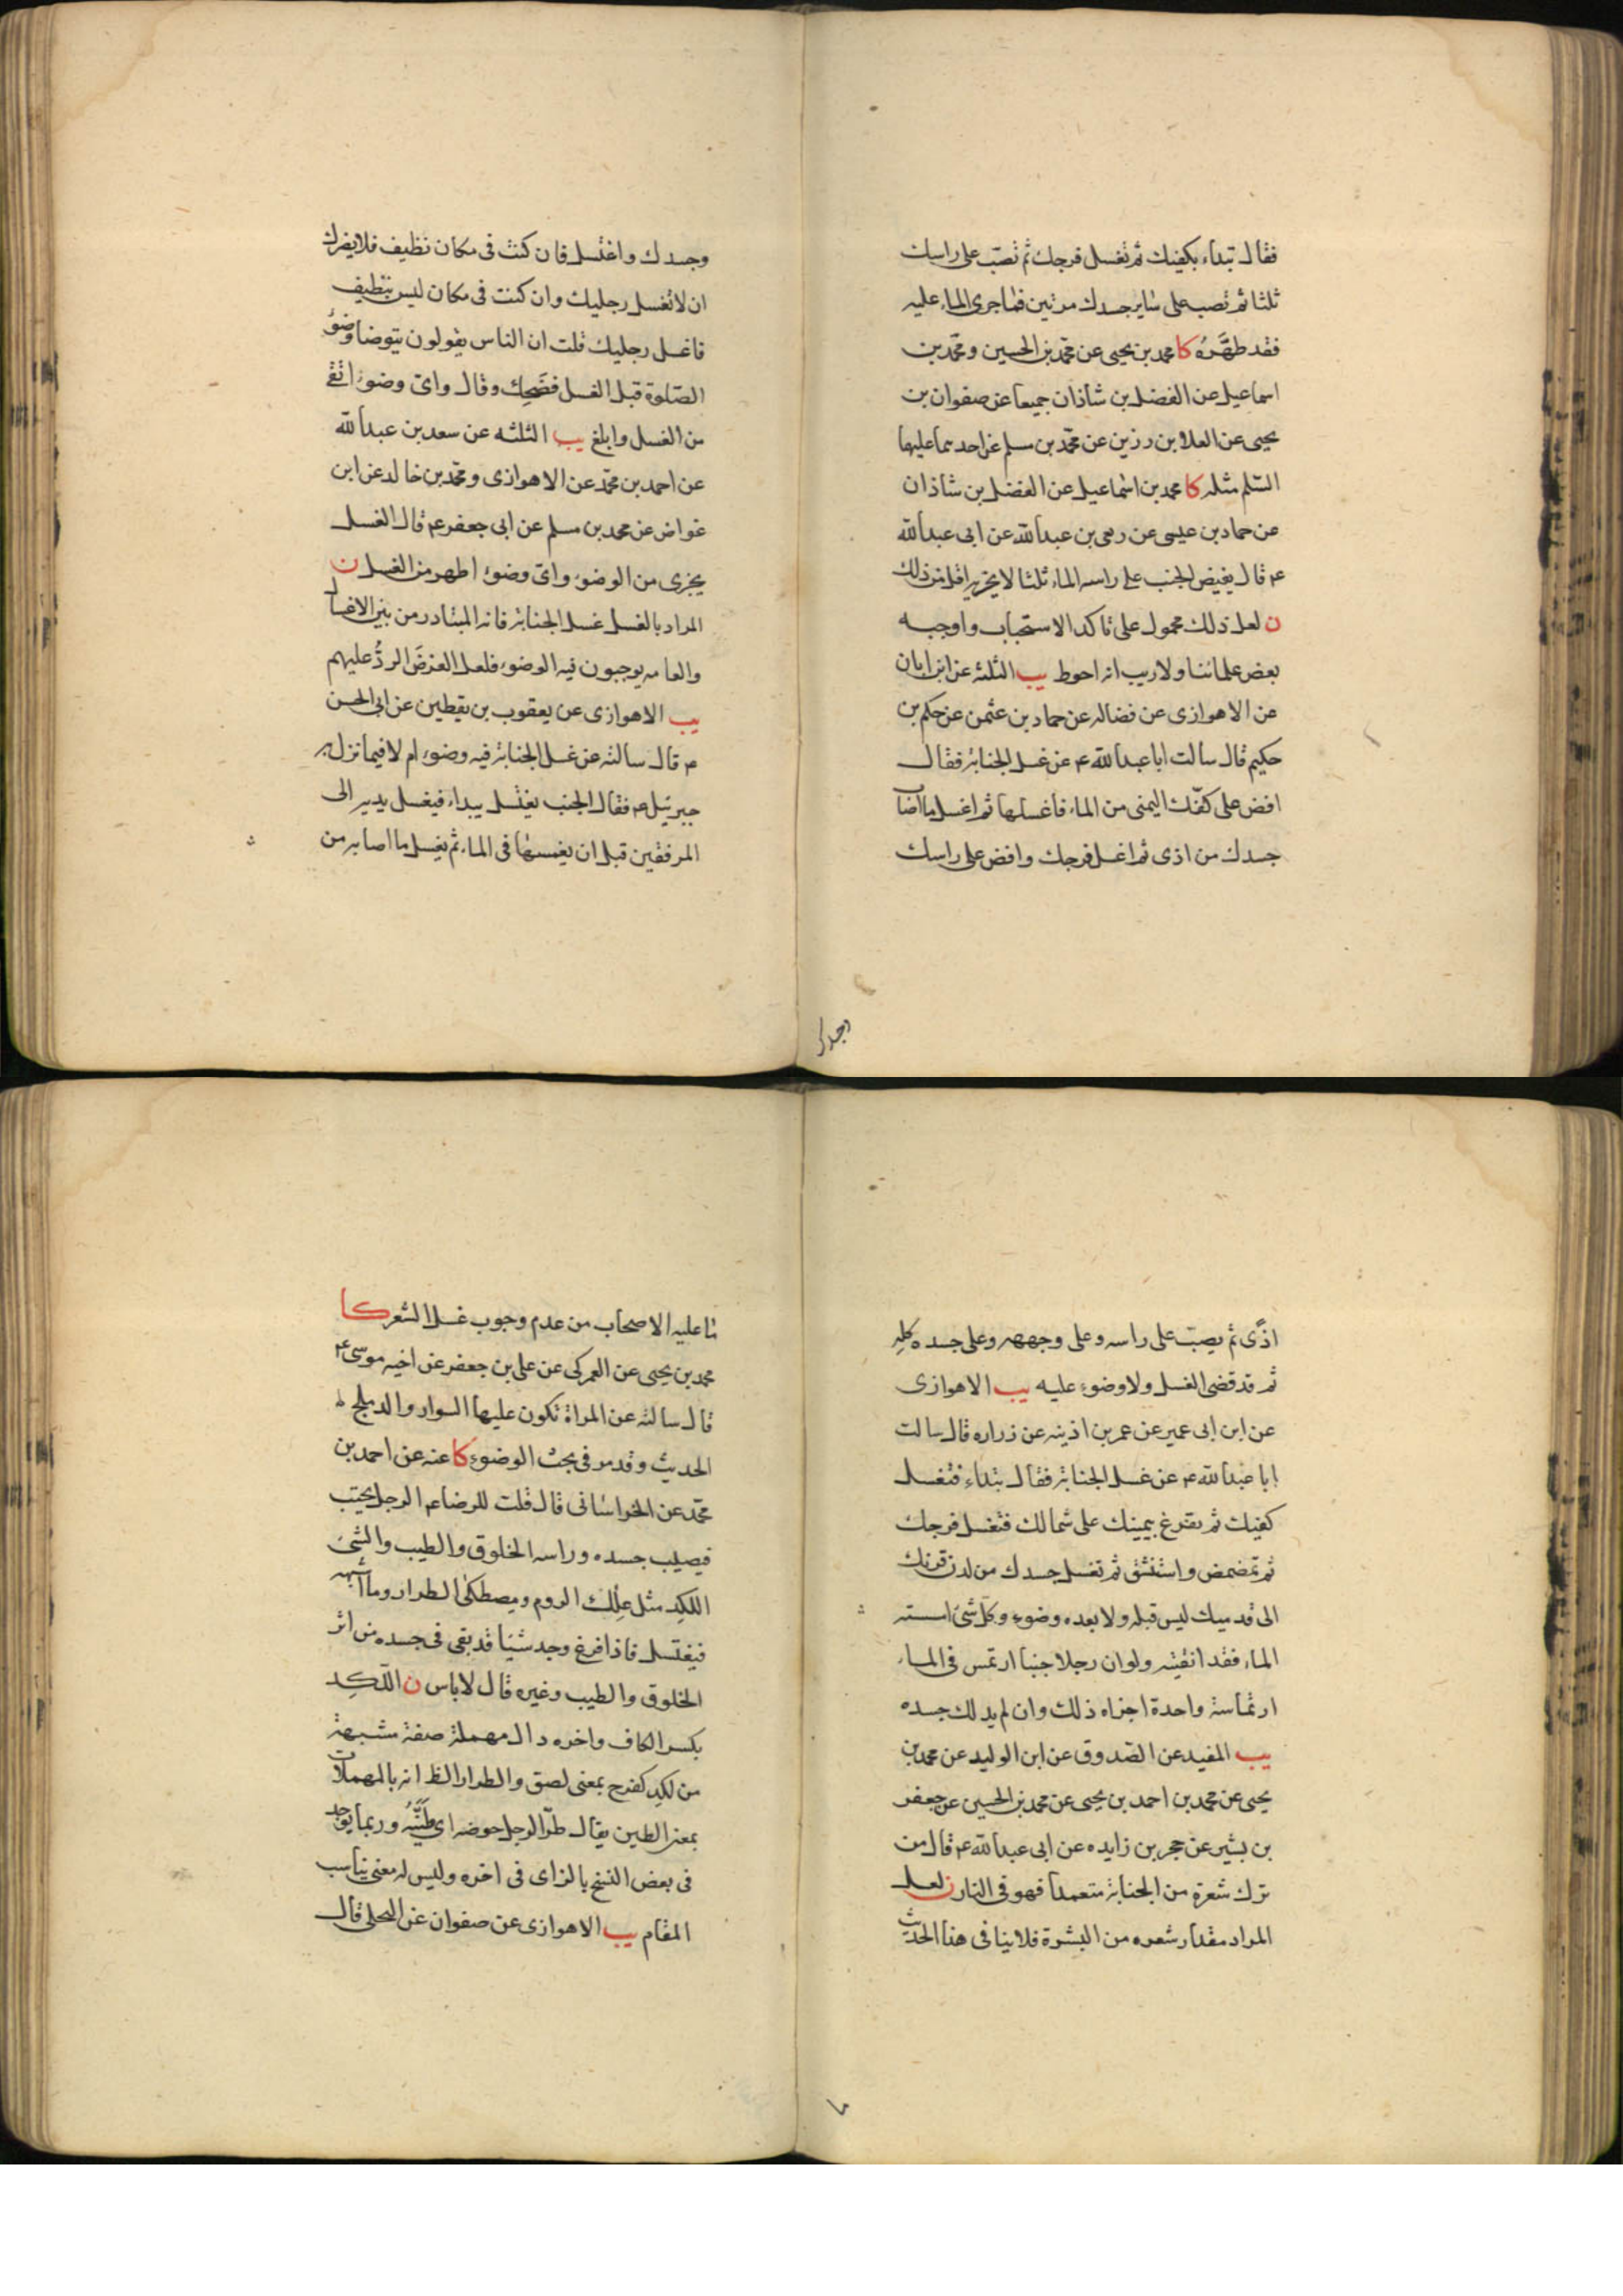 فقال تبداء بكفيك ثم تغسل فرجك ثم تصب على راسك
ثلثا ثم تصب على ساير جسدك مرتين فما جرى الماء عليه
فقد طهره كا محمد بن يحيى عن محمد بن الحسين و محمد بن
اسماعيل عن الفضل بن شاذان جميعا عن صفوان بن
يحيى عن العلا بن رزين عن محمد بن مسلم عن احدهما عليهما
السلم مثله كا محمد بن اسماعيل عن الفضل بن شاذان
عن حماد بن عيسى عن ربعى بن عبدالله عن ابى عبدالله
ع قال يفيض الجنب على راسه الماء ثلثا لا يجزيه اقل من ذلك
ن لعل ذلك محمول على تاكد الاستحباب واوجبه
بعض علمائنا ولا ريب انه احوط يب الثلثه عن ابن ابان
عن الاهوازى عن فضاله عن حماد بن عثمن عن حكم بن
حكيم قال سالت ابا عبدالله ع عن غسل الجنابة فقال
افض على كفك اليمنى من الماء فاغسلها ثم اغسل ما اصاب
جسدك من اذى ثم اغسل فرجك وافض على راسك
وجسدك
وجسدك واغتسل فان كنت فى مكان نظيف فلا يضرك
ان لا تغسل رجليك وان كنت فى مكان ليس بنظيف
فاغسل رجليك قلت ان الناس يقولون يتوضا وضوء
الصلوة قبل الغسل فضحك وقال واى وضوء انقى
من الغسل وابلغ يب الثلثه عن سعد بن عبدالله
عن احمد بن محمد عن الاهوازى ومحمد بن خالد عن ابن
غواض عن محمد بن مسلم عن ابى جعفر ع قال الغسل
يجزى من الوضوء واى وضوء اطهر من الغسل ن
المراد بالغسل غسل الجنابة فانه المتبادر من بين الاغسال
والعامه يوجبون فيه الوضوء فلعل الغرض الرد عليهم
يب الاهوازى عن يعقوب بن يقطين عن ابى الحسن
ع قال سالته عن غسل الجنابة فيه وضوء ام لا فيما نزل به
جبرئيل ع فقال الجنب يغتسل يبداء فيغسل يديه الى
المرفقين قبل ان يغمسها فى الماء ثم يغسل ما اصابه من
اذى ثم يصب على راسه وعلى وجهه وعلى جسده كله
ثم قد قضى الغسل ولا وضوء عليه يب الاهوازى
عن ابن ابى عمير عن عمر بن اذينه عن زراره قال سالت
ابا عبدالله ع عن غسل الجنابة فقال تبداء فتغسل
كفيك ثم تفرغ بيمينك على شمالك فتغسل فرجك
ثم تمضمض واستنشق ثم تغسل جسدك من لدن قرنك
الى قدميك ليس قبله ولا بعده وضوء وكل شئ امسته
الماء فقد انقيته ولو ان رجلا جنبا ارتمس فى الماء
ارتماسة واحدة اجزاه ذلك وان لم يدلك جسده
يب المفيد عن الصدوق عن ابن الوليد عن محمد بن
يحيى عن محمد بن احمد بن يحيى عن محمد بن الحسين عن جعفر
بن بشير عن حجر بن زايده عن ابى عبدالله ع قال من
ترك شعرة من الجنابة متعمدا فهو فى النار ن لعل
المراد مقدار شعره من البشرة فلا ينافى هذا الحديث
ما
ما عليه الاصحاب من عدم وجوب غسل الشعر كا
محمد بن يحيى عن العمركى عن على بن جعفر عن اخيه موسى ع
قال سالته عن المراة تكون عليها السوار والدملج
الحديث وقد مر فى بحث الوضوء كا عنه عن احمد بن
محمد عن الخراسانى قال قلت للرضا ع الرجل يجنب
فيصيب جسده وراسه الخلوق والطيب والشئ
اللكد مثل علك الروم ومصطكى الطرار وما اشبهه
فيغتسل فاذا فرغ وجد شيئا قد بقى فى جسده من اثر
الخلوق والطيب وغيره قال لا باس ن اللكد
بكسر الكاف واخره دال مهملة صفة مشبهة
من لكد كفرح بمعنى لصق والطرار الظ انه بالمهملات
بمعنى الطين يقال طر الرجل حوضه اى طينه وربما يوجد
فى بعض النسخ بالزاى فى اخره وليس له معنى يناسب
المقام يب الاهوازى عن صفوان عن البجلى قال